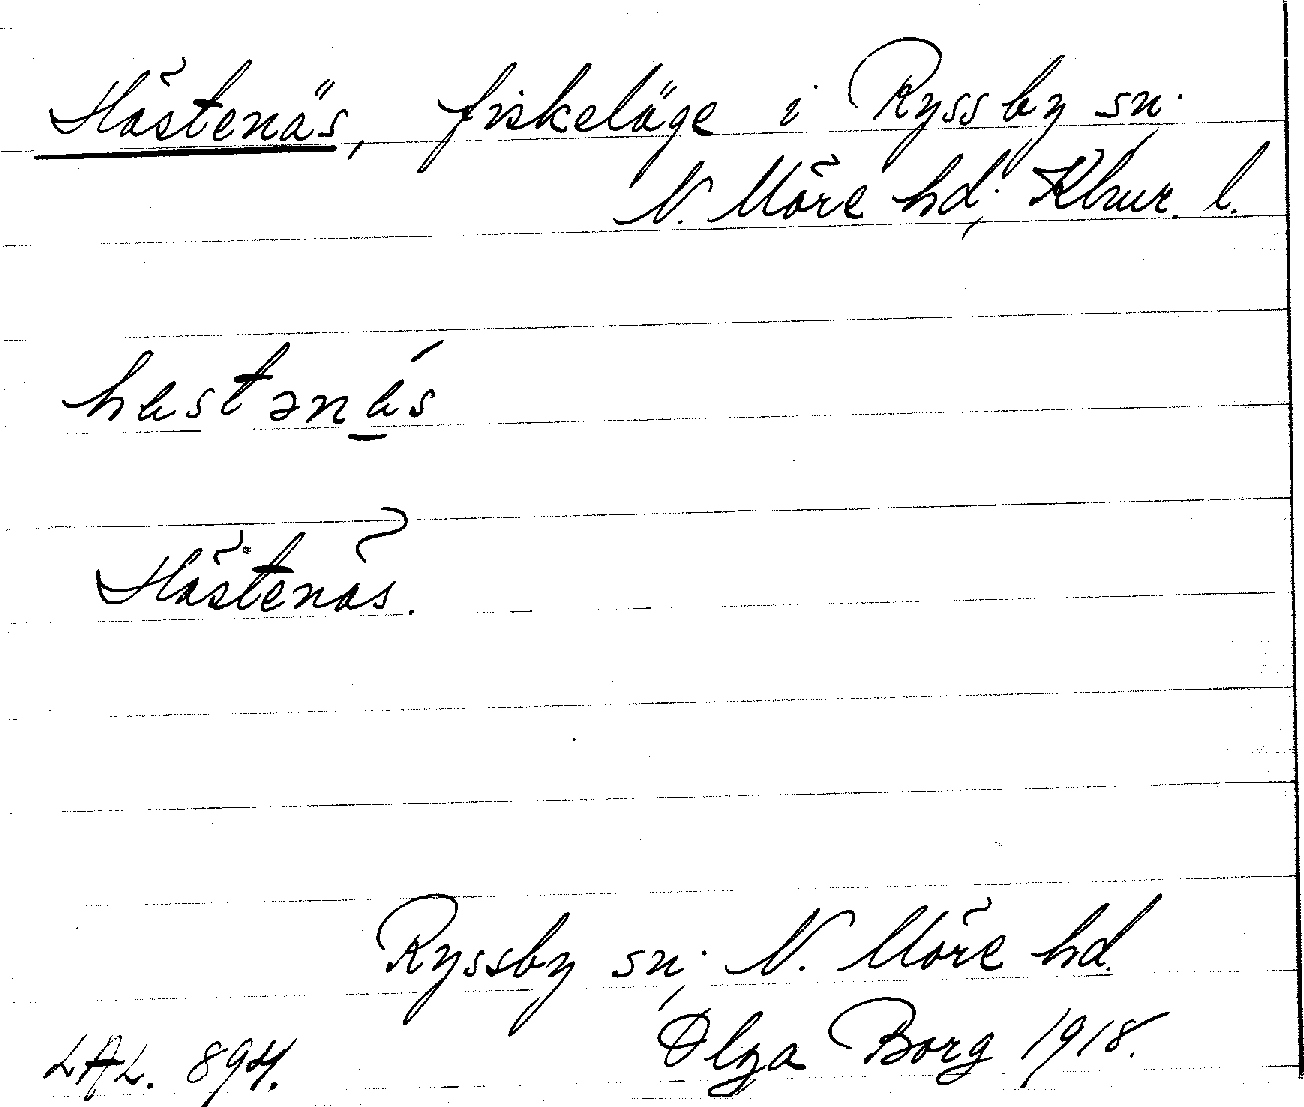 Hästenäs, fiskeläge i Ryssby sn.
N. Möre hd, Klmr. l.
hastənás
Hästenäs.
Ryssby sn, N. Möre hd.
LAL. 894. Olga Borg 1918.